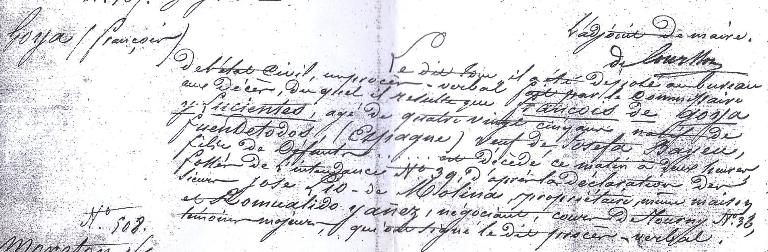 L'adjoint de maire.
Goya (françois)
de Courson
Le dit jour, il a été déposé au bureau
de l'état Civil, un procès-verbal fait par le Commissaire
aux Décès, duquel il résulte que françois de Goya
y Lucientes, agé de quatre vingt cinq ans natif de
fuendetodos, (Espagne) veuf de Josefa Bayeu,
fils de Défunts ...... est décédé ce matin à deux heures
fossés de l'intendance No 39, d'après la déclaration des
sieurs José Pio de Molina, propriétaire, même maison
et Romualdo Yañez, négociant, cours de tourny No 36,
témoins majeurs, qui ont signé le dit procès-verbal.
No 508.